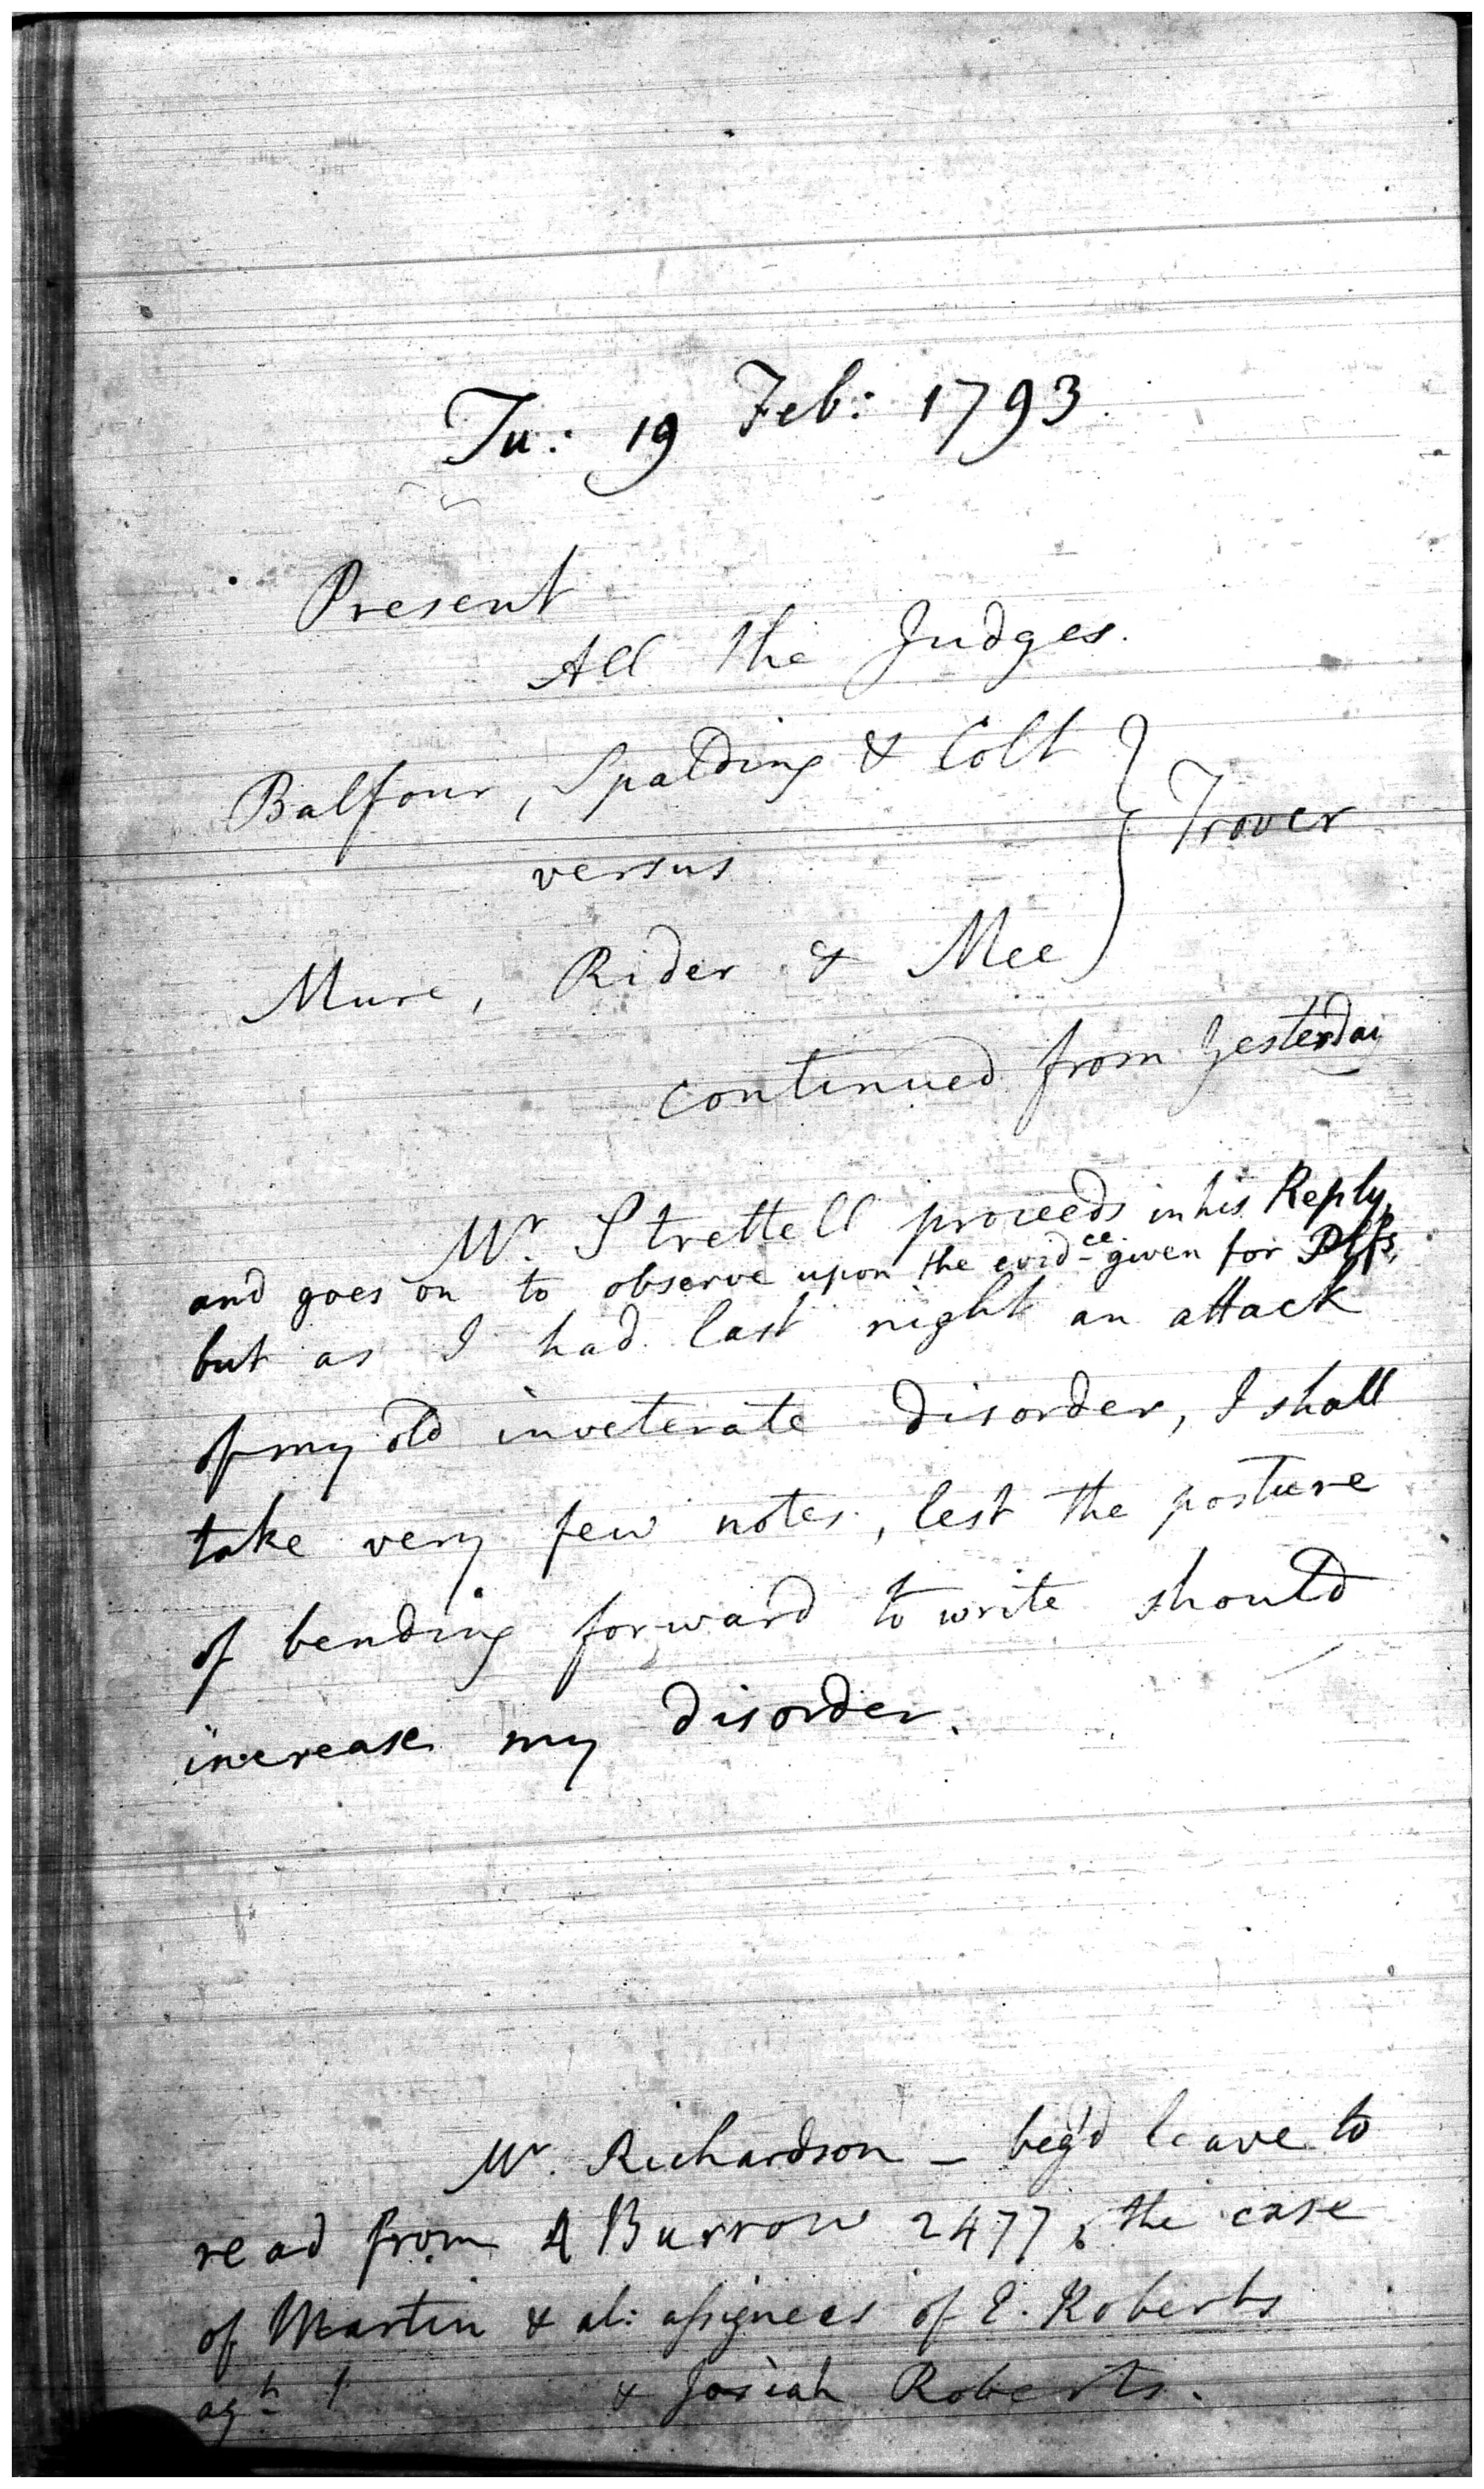 Tu: 19 Feb: 1793
Present
All the Judges.
Balfour, Spalding & Colt
versus
Trover
Mure, Rider & Mee
continued from yesterday
Mr. Strettell proceeds in his Reply,
and goes on to observe upon the evidce. given for Plfs,
but as I had last night an attack
of my old inveterate disorder, I shall
take very few notes, lest the posture
of bending forward to write should
increase my disorder.
Mr. Richardson - beg'd leave to
read from 4 Burrow 2477, the case
of Martin & al: assignees of E. Roberts
agt & Josiah Roberts.